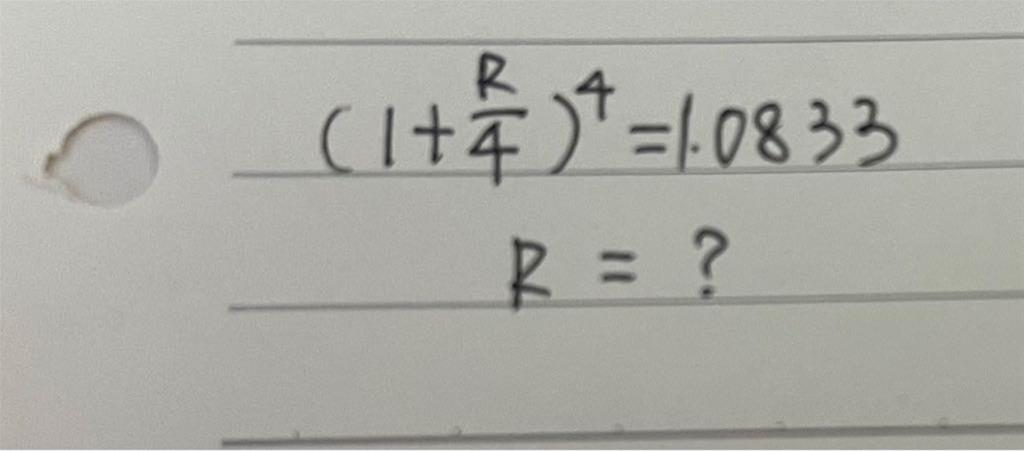 (1+R/4)^4=1.0833
R = ?